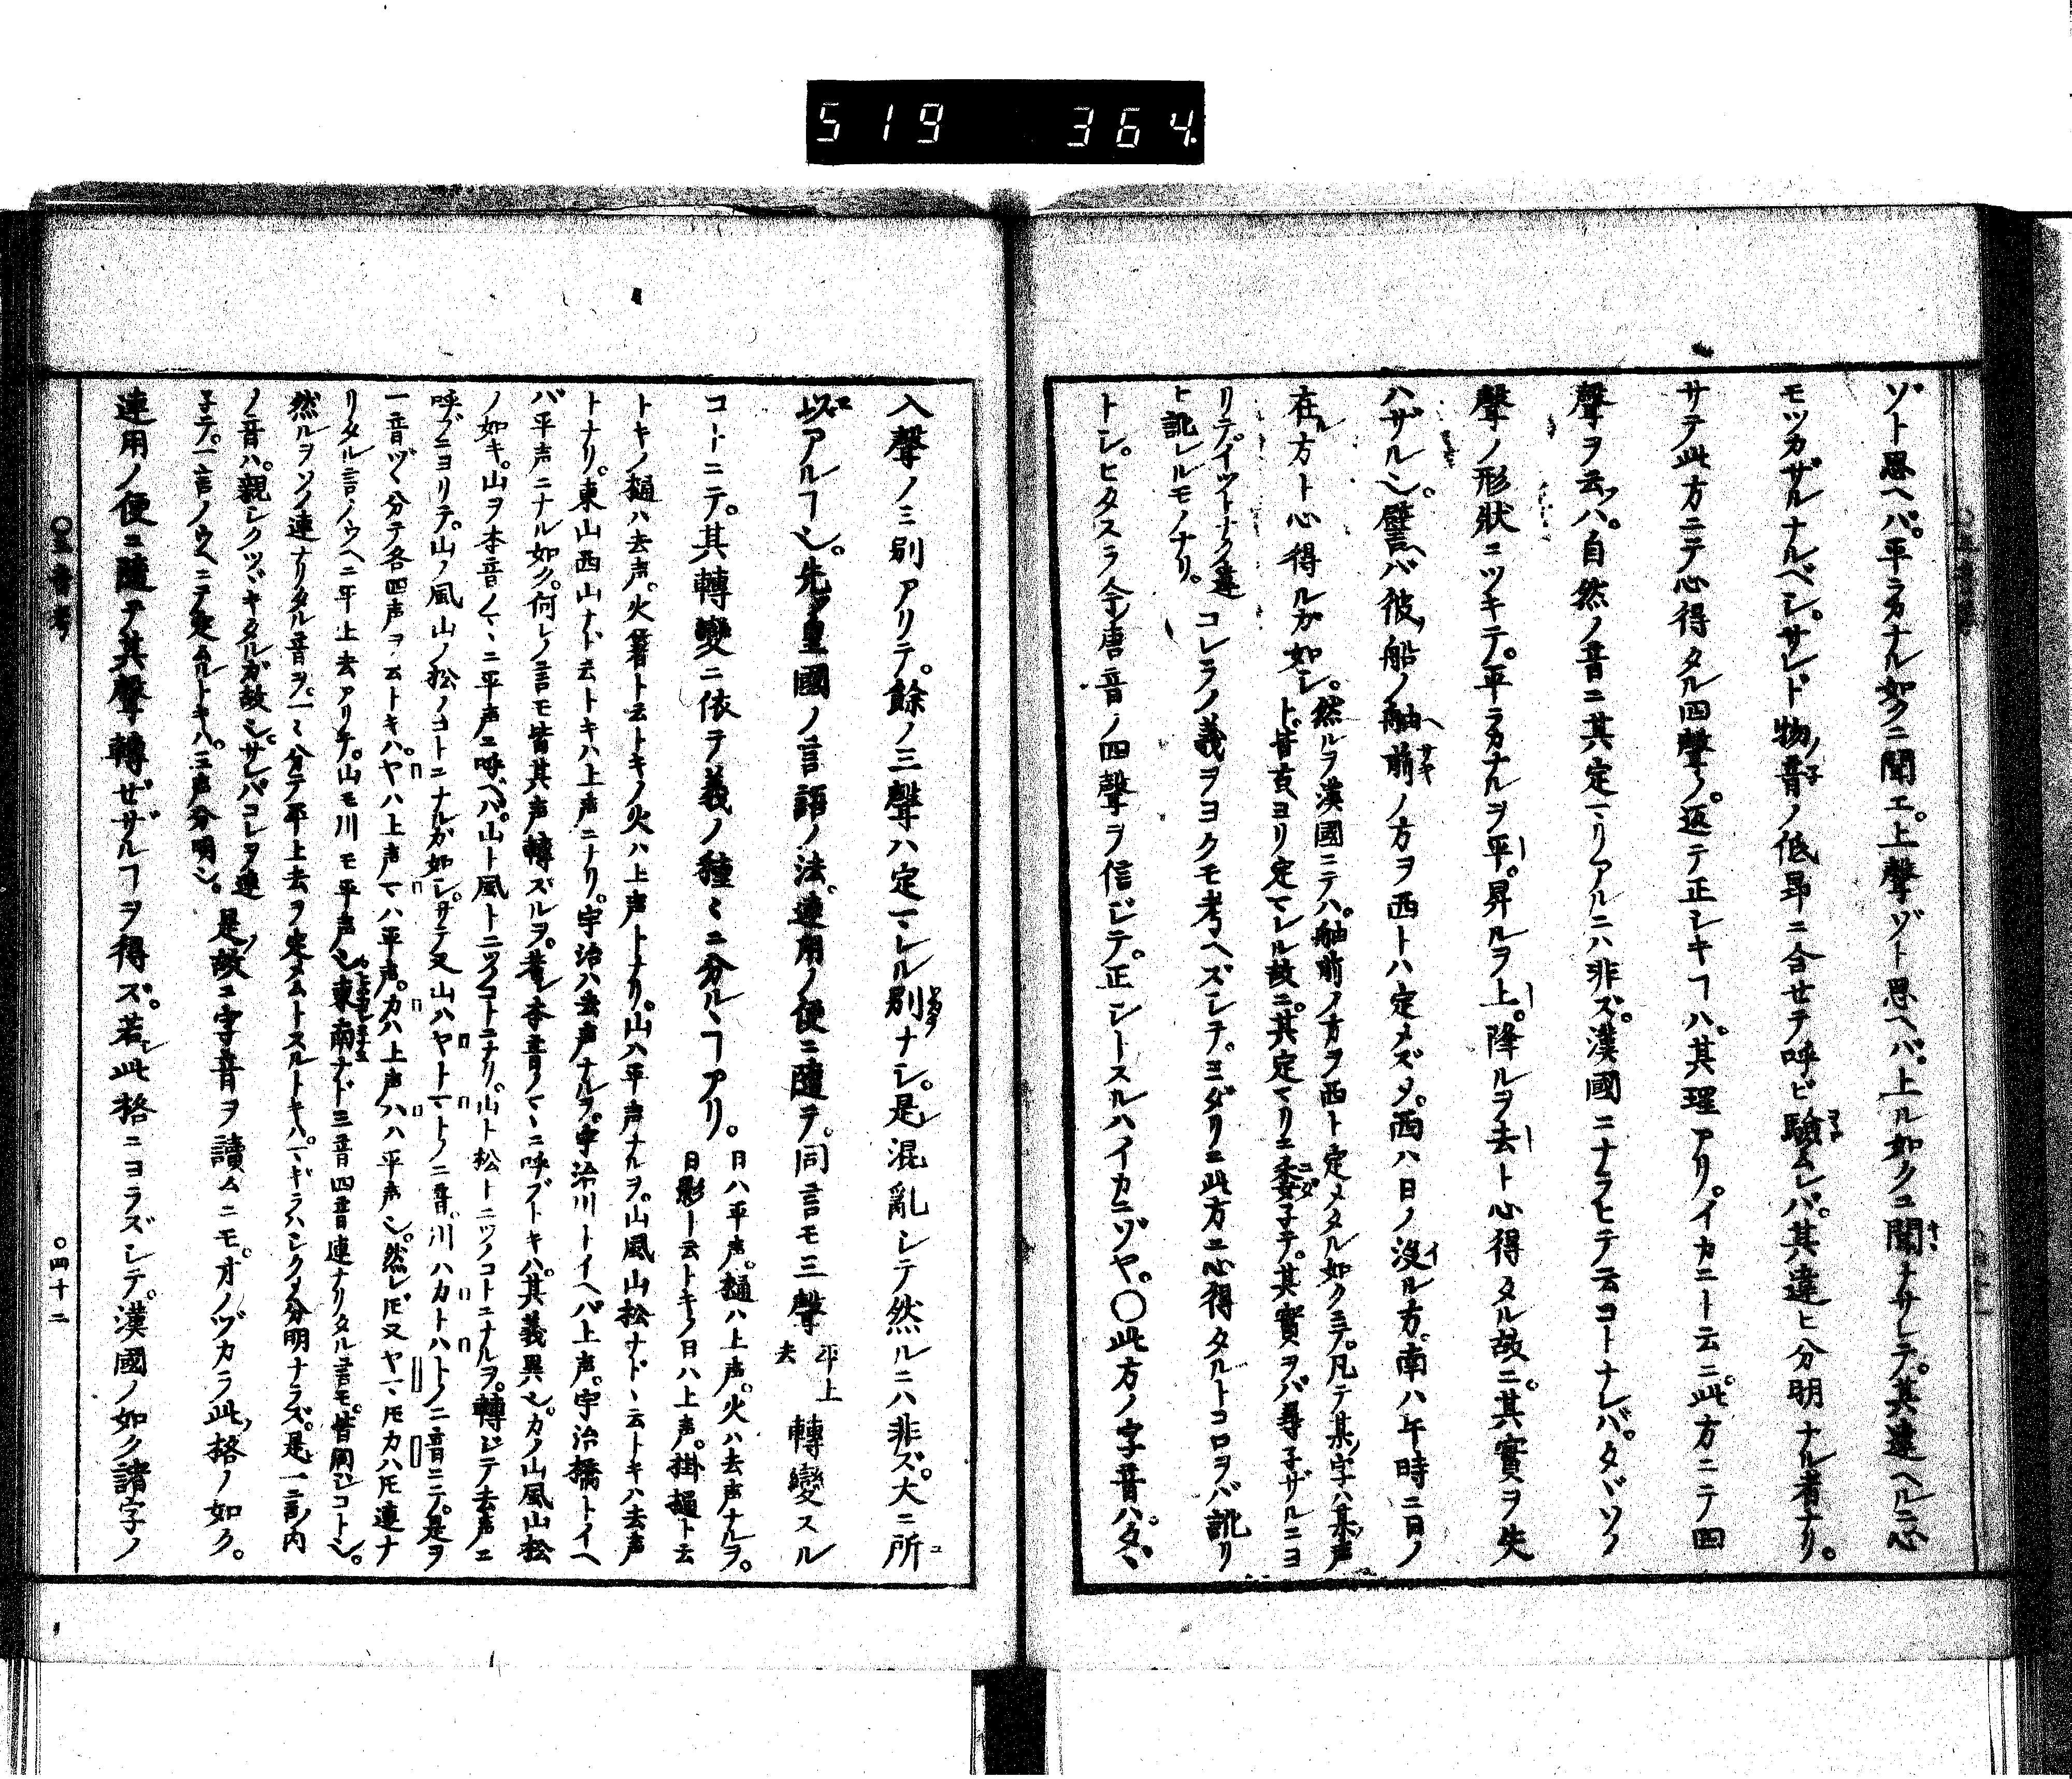 519 364
ゾト思ヘバ。平ラカナル如クニ聞エ。上聲ゾト思ヘバ。上ル如クニ聞ナサレテ。其違ヘルニ心
モツカザルナルベシ。サレド物ノ音ノ低昂ニ合セテ呼ビ驗ムレバ。其違ヒ分明ナル者ナリ。
サテ此方ニテ心得タル四聲ノ。返テ正シキヿハ。其理アリ。イカニト云ニ。此方ニテ四
聲ヲ云ハ。自然ノ音ニ其定マリアルニハ非ズ。漢國ニナラヒテ云コトナレバ。タヾソノ
聲ノ形狀ニツキテ。平ラカナルヲ平。昇ルヲ上。降ルヲ去ト心得タル故ニ。其實ヲ失
ハザル也。譬ヘバ彼ノ船ノ舳前ノ方ヲ西トハ定メズ〆。西ハ日ノ沒ル方。南ハ午時ニ日ノ
在ル方ト心得ルガ如シ。
然ルヲ漢國ニテハ。舳前ノ方ヲ西ト定メタル如クニテ。凡テ某ノ字ハ某ノ声
ト。皆古ヨリ定マレル故ニ。其定マリニ委子テ。其實ヲバ尋子ザルニヨ
リテ。イツトナク違
ト訛レルモノナリ。
コレラノ義ヲヨクモ考ヘズシテ。ミダリニ此方ニ心得タルトコロヲバ訛リ
トシ。ヒタスラ今ノ唐音ノ四聲ヲ信ジテ。正シトスルハイカニゾヤ。〇此方ノ字音ハ。タヾ
入聲ノミ別アリテ。餘ノ三聲ハ定マレル別ナシ。是レ混亂シテ然ルニハ非ズ。大ニ所
以アルヿ也。先ヅ皇國ノ言語ノ法。連用ノ便ニ隨テ。同言モ三聲
平上
去
轉變スル
コトニテ。其轉變ニ依テ義ノ種々ニ分ルヽヿアリ。
日ハ平声。樋ハ上声。火ハ去声ナルヲ。
日影ト云トキノ日ハ上声。掛樋ト云
トキノ樋ハ去声。火箸ト云トキノ火ハ上声トナリ。山ハ平声ナルヲ。山風山松ナドヽ云トキハ去声
トナリ。東山西山ナド云トキハ上声ニナリ。宇治ハ去声ナルヲ。宇治川トイヘバ上声。宇治橋トイヘ
バ平声ニナル如ク。何レノ言モ皆其声轉ズルヲ。若シ本音ノマヽニ呼ブトキハ。其義異也。カノ山風山松
ノ如キ。山ヲ本音ノマヽニ平声ニ呼ヘバ。山ト風トニツノコトニナリ。山ト松トニツノコトニナルヲ。轉ジテ去声ニ
呼ブニヨリテ。山ノ風山ノ松ノコトニナルガ如シ。サテ又山ハヤトマトノ二音。川ハカトハトノ二音ニテ。是ヲ
一音ヅヽ分テ各四声ヲ云トキハ。ヤハ上声マハ平声。カハ上声ハハ平声也。然レ𪜈又ヤマ𪜈カハ𪜈連ナ
リタル言ノウヘニ平上去アリテ。山モ川モ平声也。東南ナド三音四音連ナリタル言モ。皆同ジコト也。
然ルヲソノ連ナリタル音ヲ。一々分テ平上去ヲ定メムトスルトキハ。マギラハシク〆分明ナラズ。是一言ノ内
ノ音ハ。親シクツヾキタルガ故也。サレバコレヲ連
子テ。一言ノウヘニテ定ムルトキハ。三声分明也。
是ノ故ニ字音ヲ讀ムニモ。オノヅカラ此ノ格ノ如ク。
連用ノ便ニ隨テ其聲轉ゼザルヿヲ得ズ。若シ此格ニヨラズシテ。漢國ノ如ク諸字ノ
〇四十二